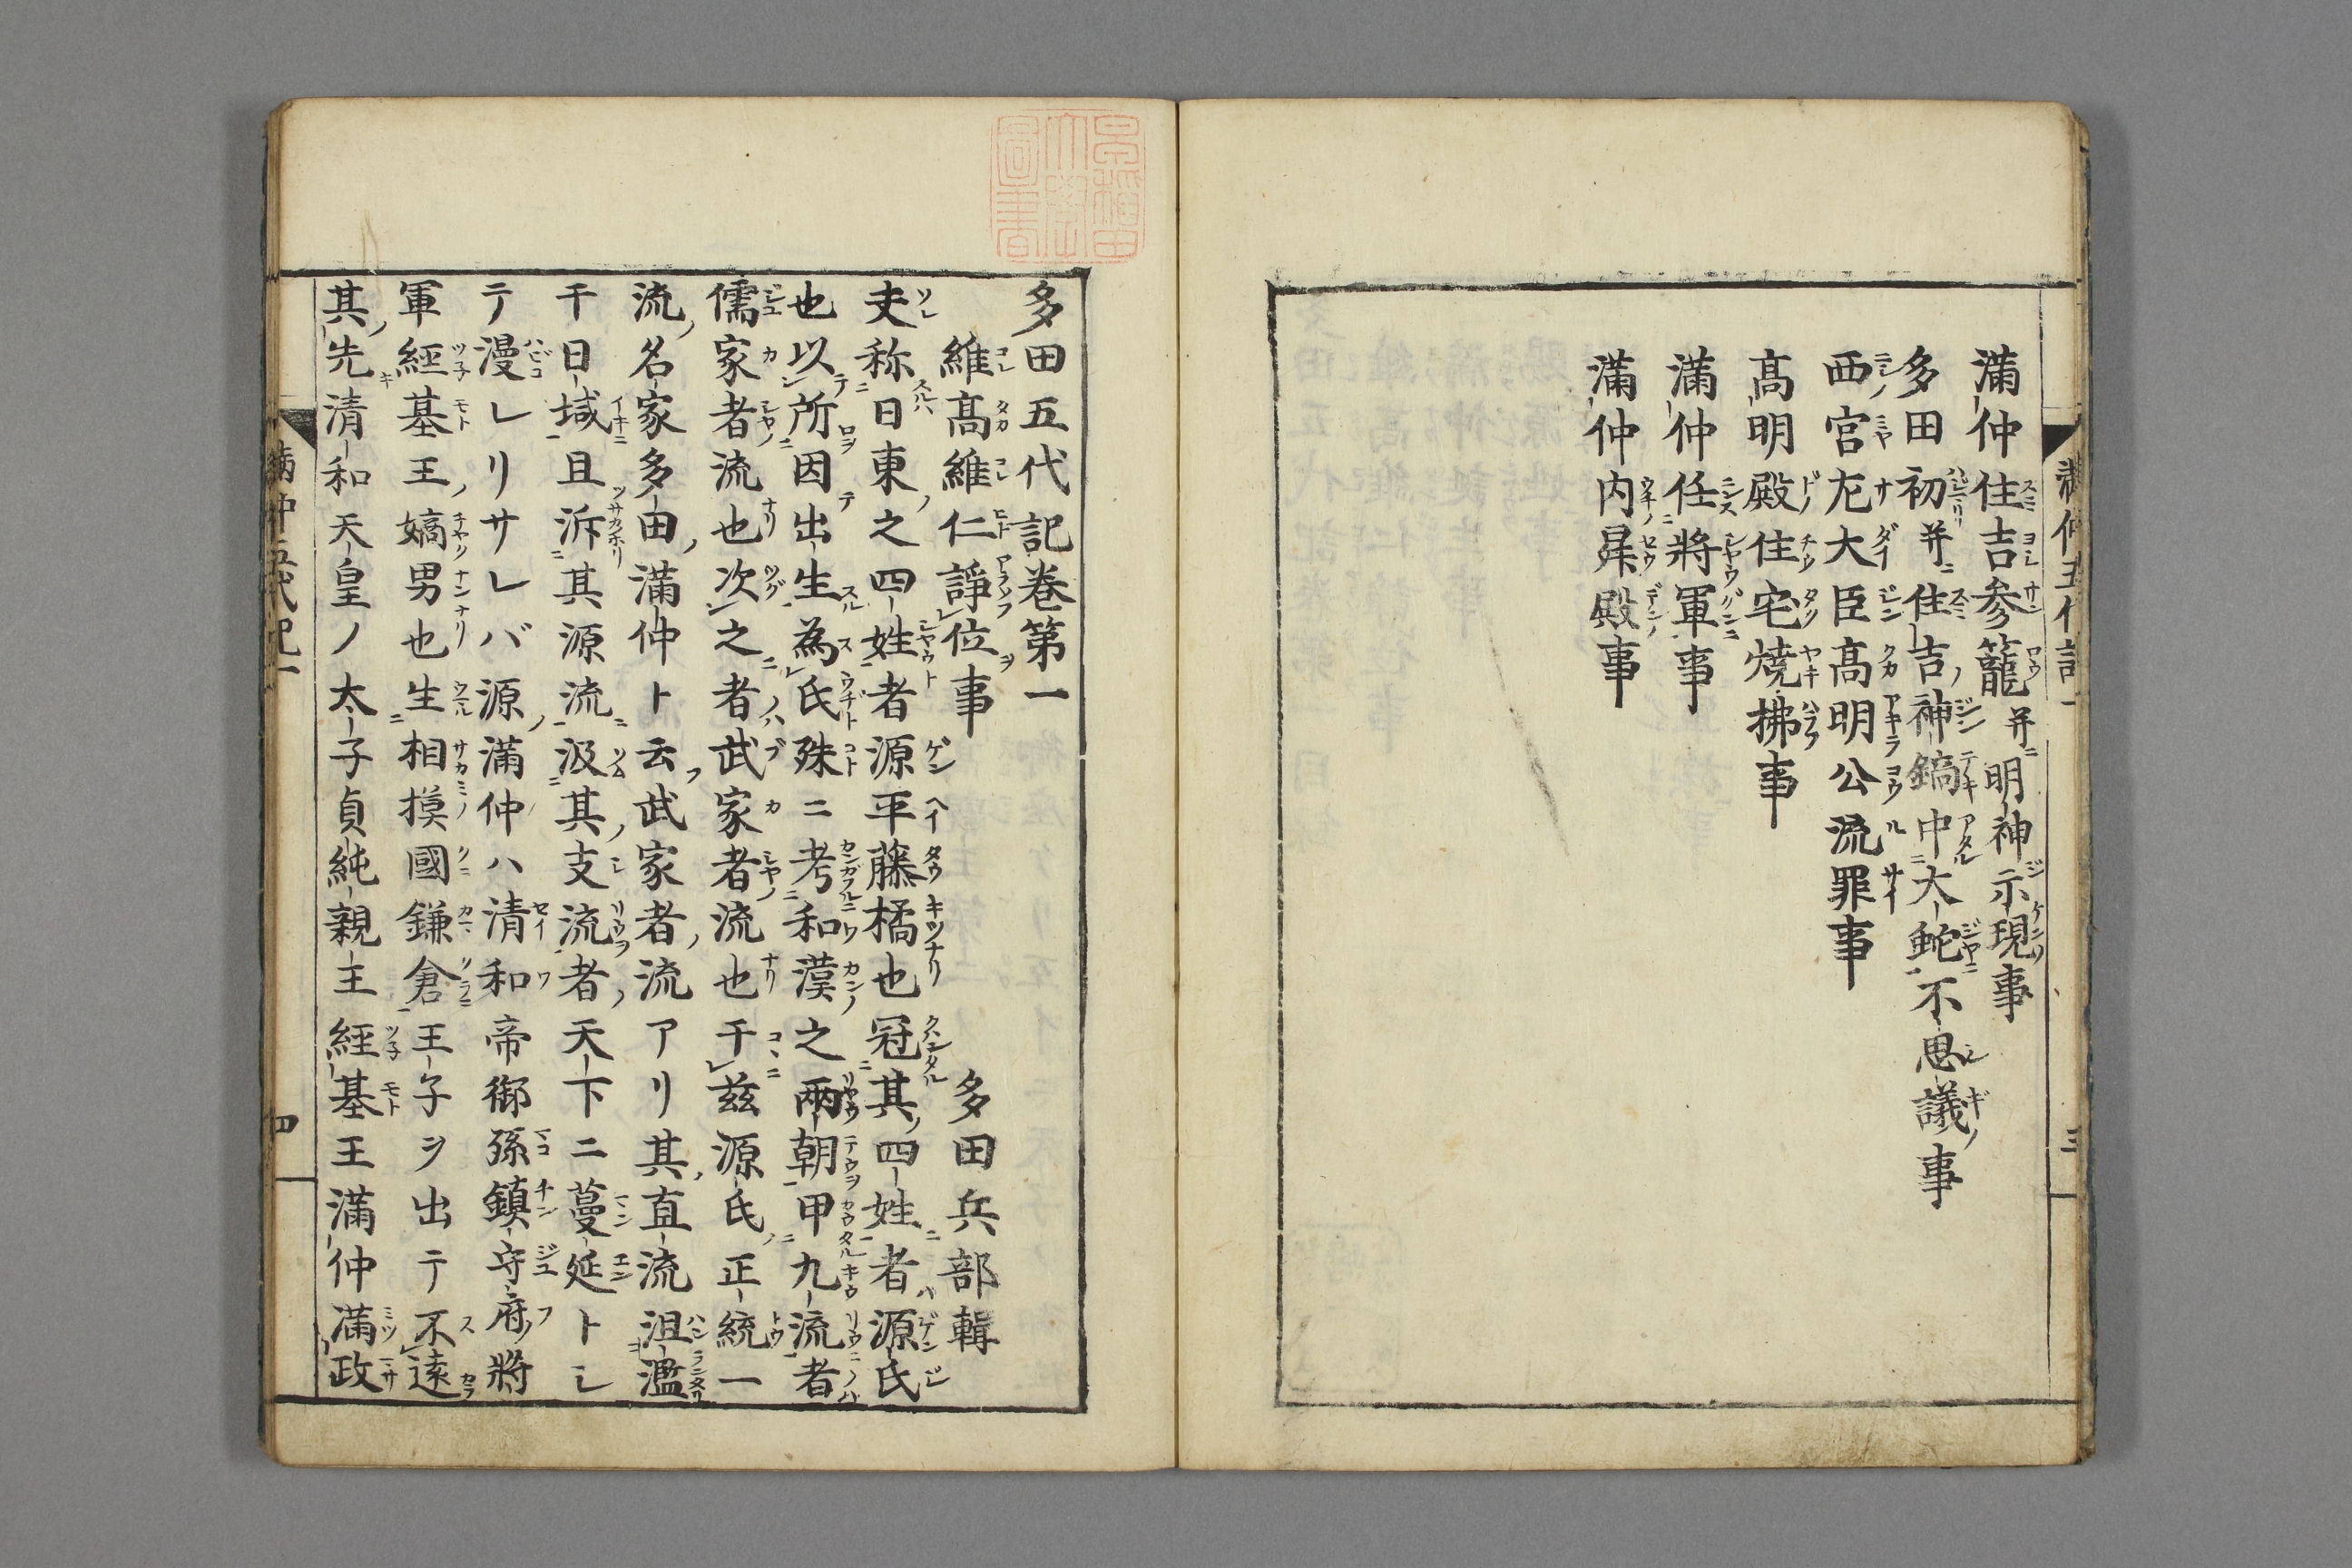 満仲五代記一
三
満仲住吉参籠并ニ明神示現事
多田初并ニ住吉神鏑中大鮀不思議事
西宮左大臣髙明公流罪事
髙明殿住宅焼拂事
満仲任將軍事
満仲内昇殿事
早稲田大學圖書
多田五代記巻第一
維髙維仁諍位事 多田兵部輯
夫称日東之四姓者源平藤橘也冠其四姓者源氏
也以所因出生為氏殊ニ考和漢之兩朝甲九流者
儒家者流也次之者武家者流也于兹源氏正統一
流名家多田満仲ト云武家者流アリ其直流沮濫
于日域且泝其源流汲其支流者天下ニ蔓延トシ
テ漫レリサレバ源満仲ハ清和帝御孫鎮守府將
軍經基王嫡男也生相摸國鎌倉王子ヲ出テ不遠
其先清和天皇ノ太子貞純親王經基王満仲満政
満仲五代記一
四